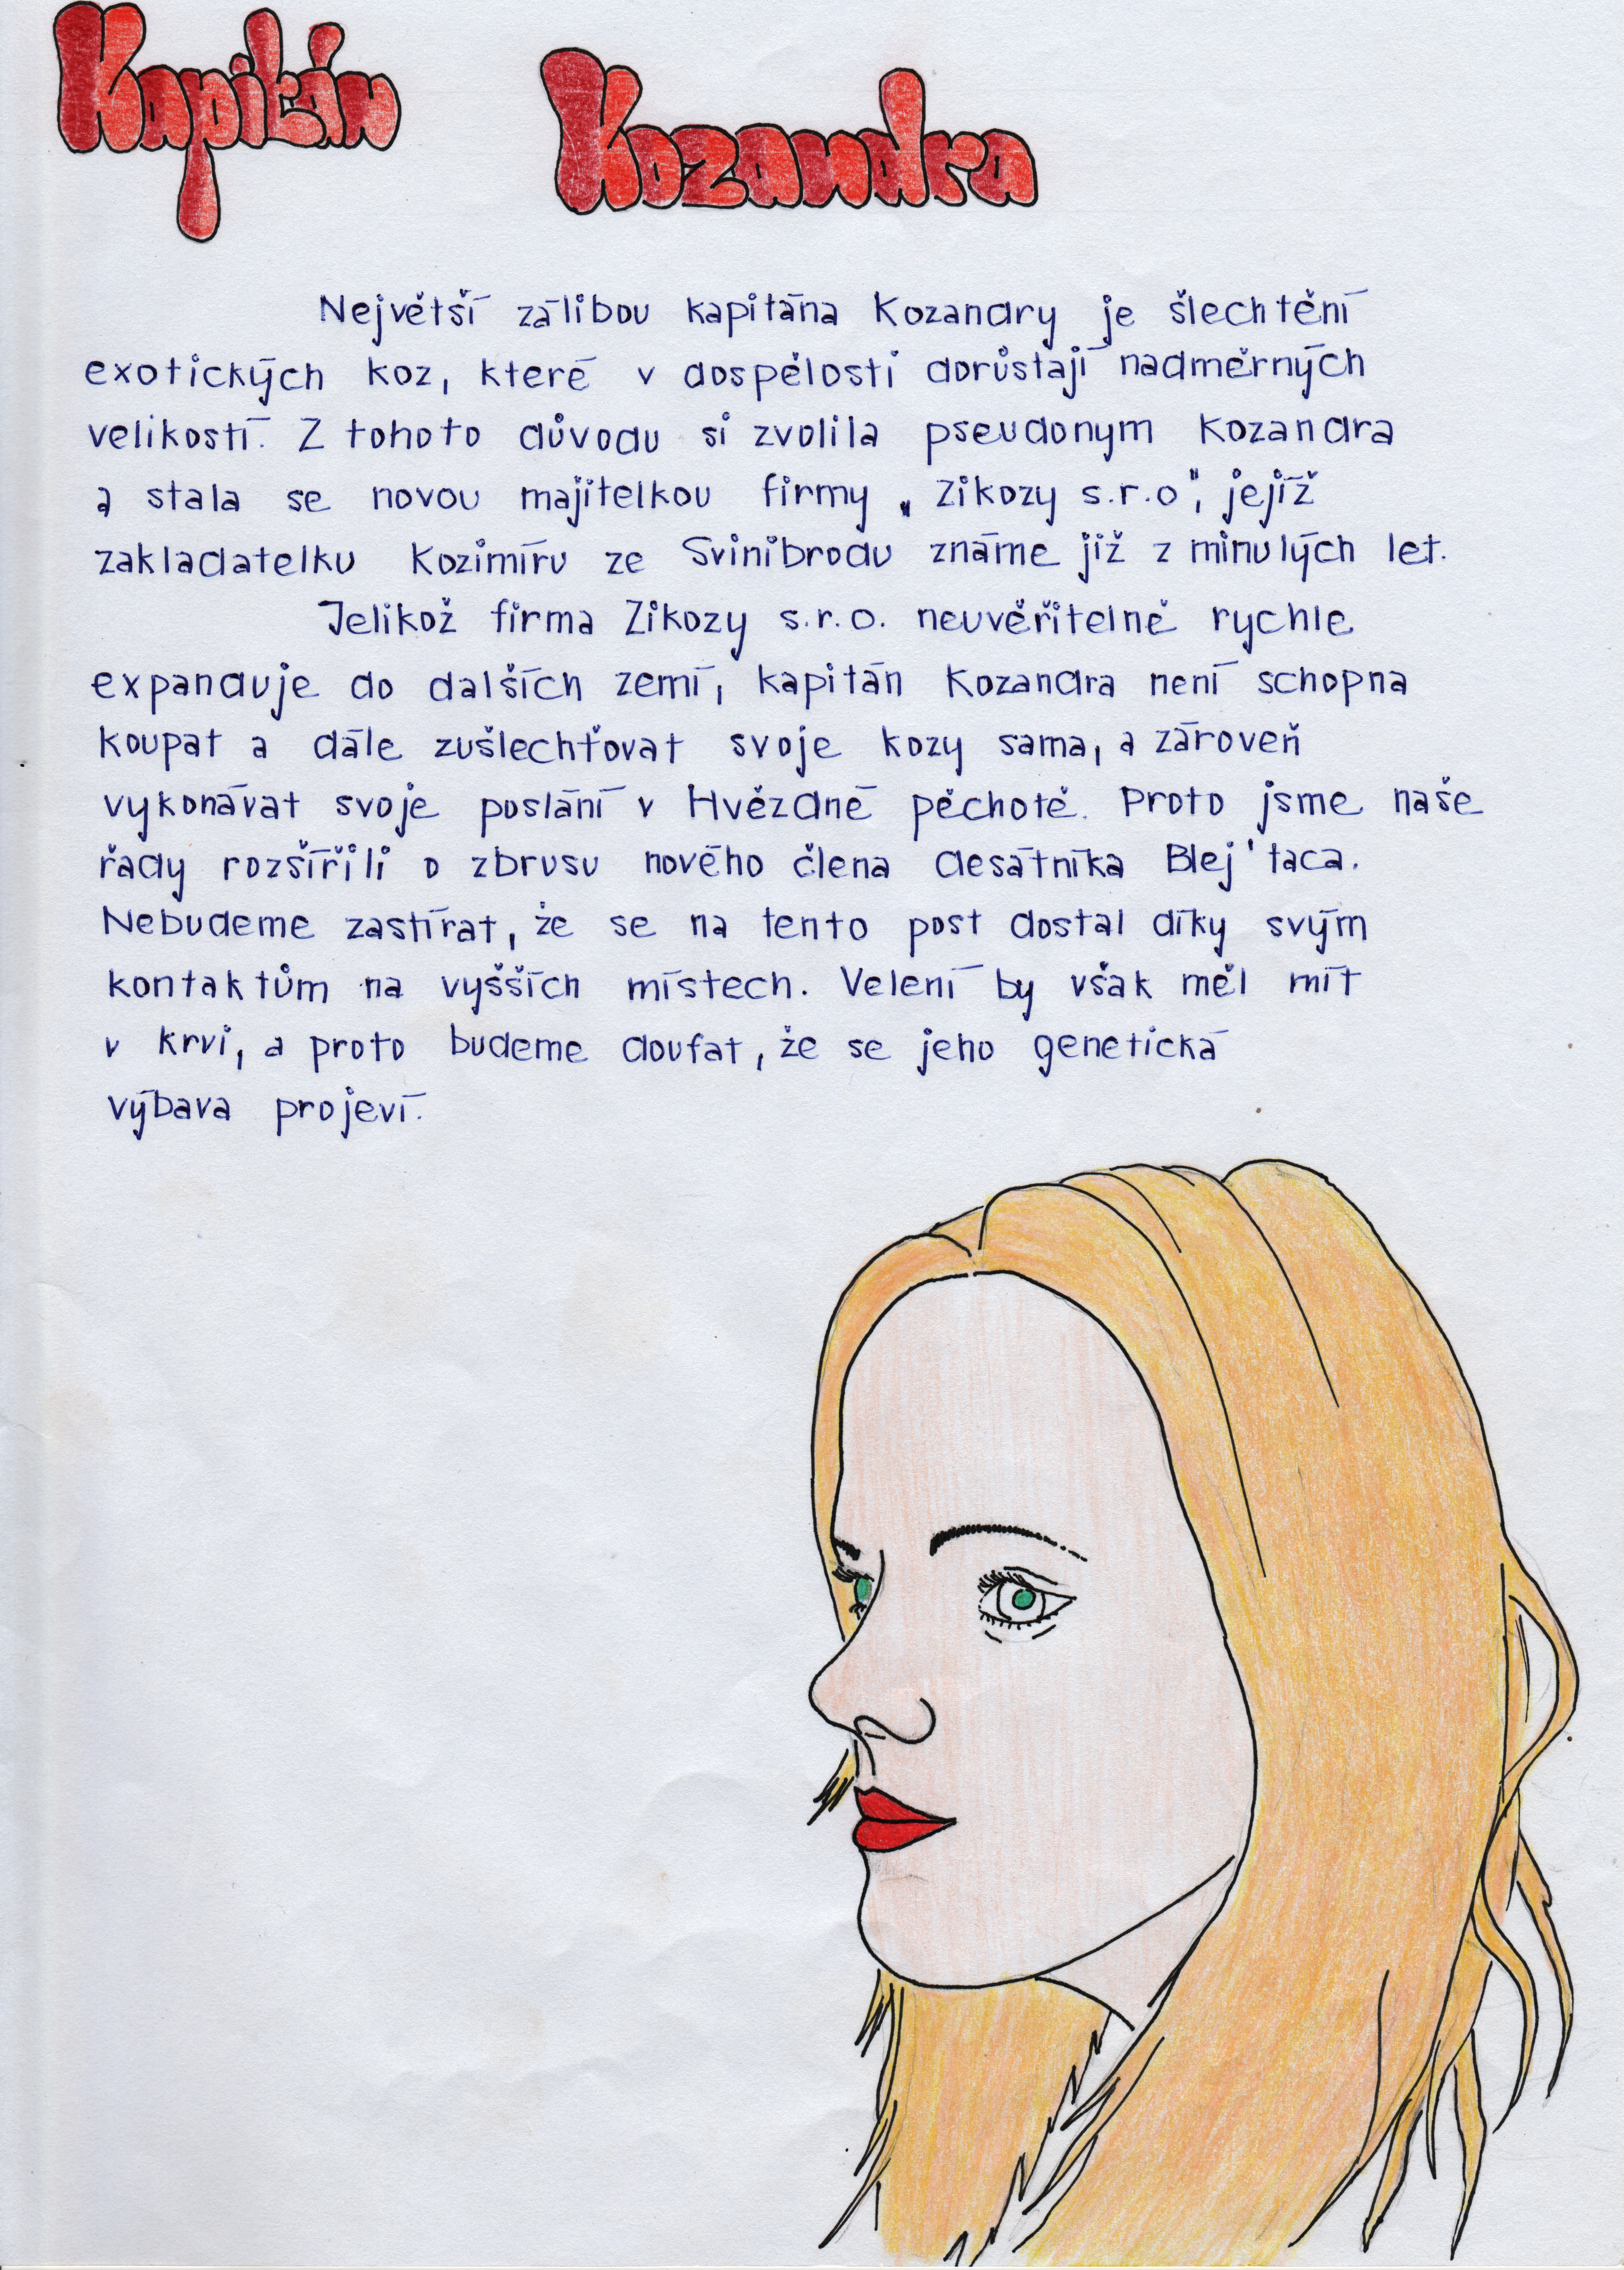 Kapitán Kozandra
Největší zálibou kapitána Kozandry je šlechtění
exotických koz, které v dospělosti dorůstají nadměrných
velikostí. Z tohoto důvodu si zvolila pseudonym Kozandra
a stala se novou majitelkou firmy „Zikozy s.r.o", jejíž
zakladatelku Kozimíru ze Svinibrodu známe již z minulých let.
Jelikož firma Zikozy s.r.o. neuvěřitelně rychle
expanduje do dalších zemí, kapitán Kozandra není schopna
koupat a dále zušlechťovat svoje kozy sama, a zároveň
vykonávat svoje poslání v Hvězdné pěchotě. Proto jsme naše
řady rozšířili o zbrusu nového člena desátníka Blej'taca.
Nebudeme zastírat, že se na tento post dostal díky svým
kontaktům na vyšších místech. Velení by však měl mít
v krvi, a proto budeme doufat, že se jeho genetická
výbava projeví.